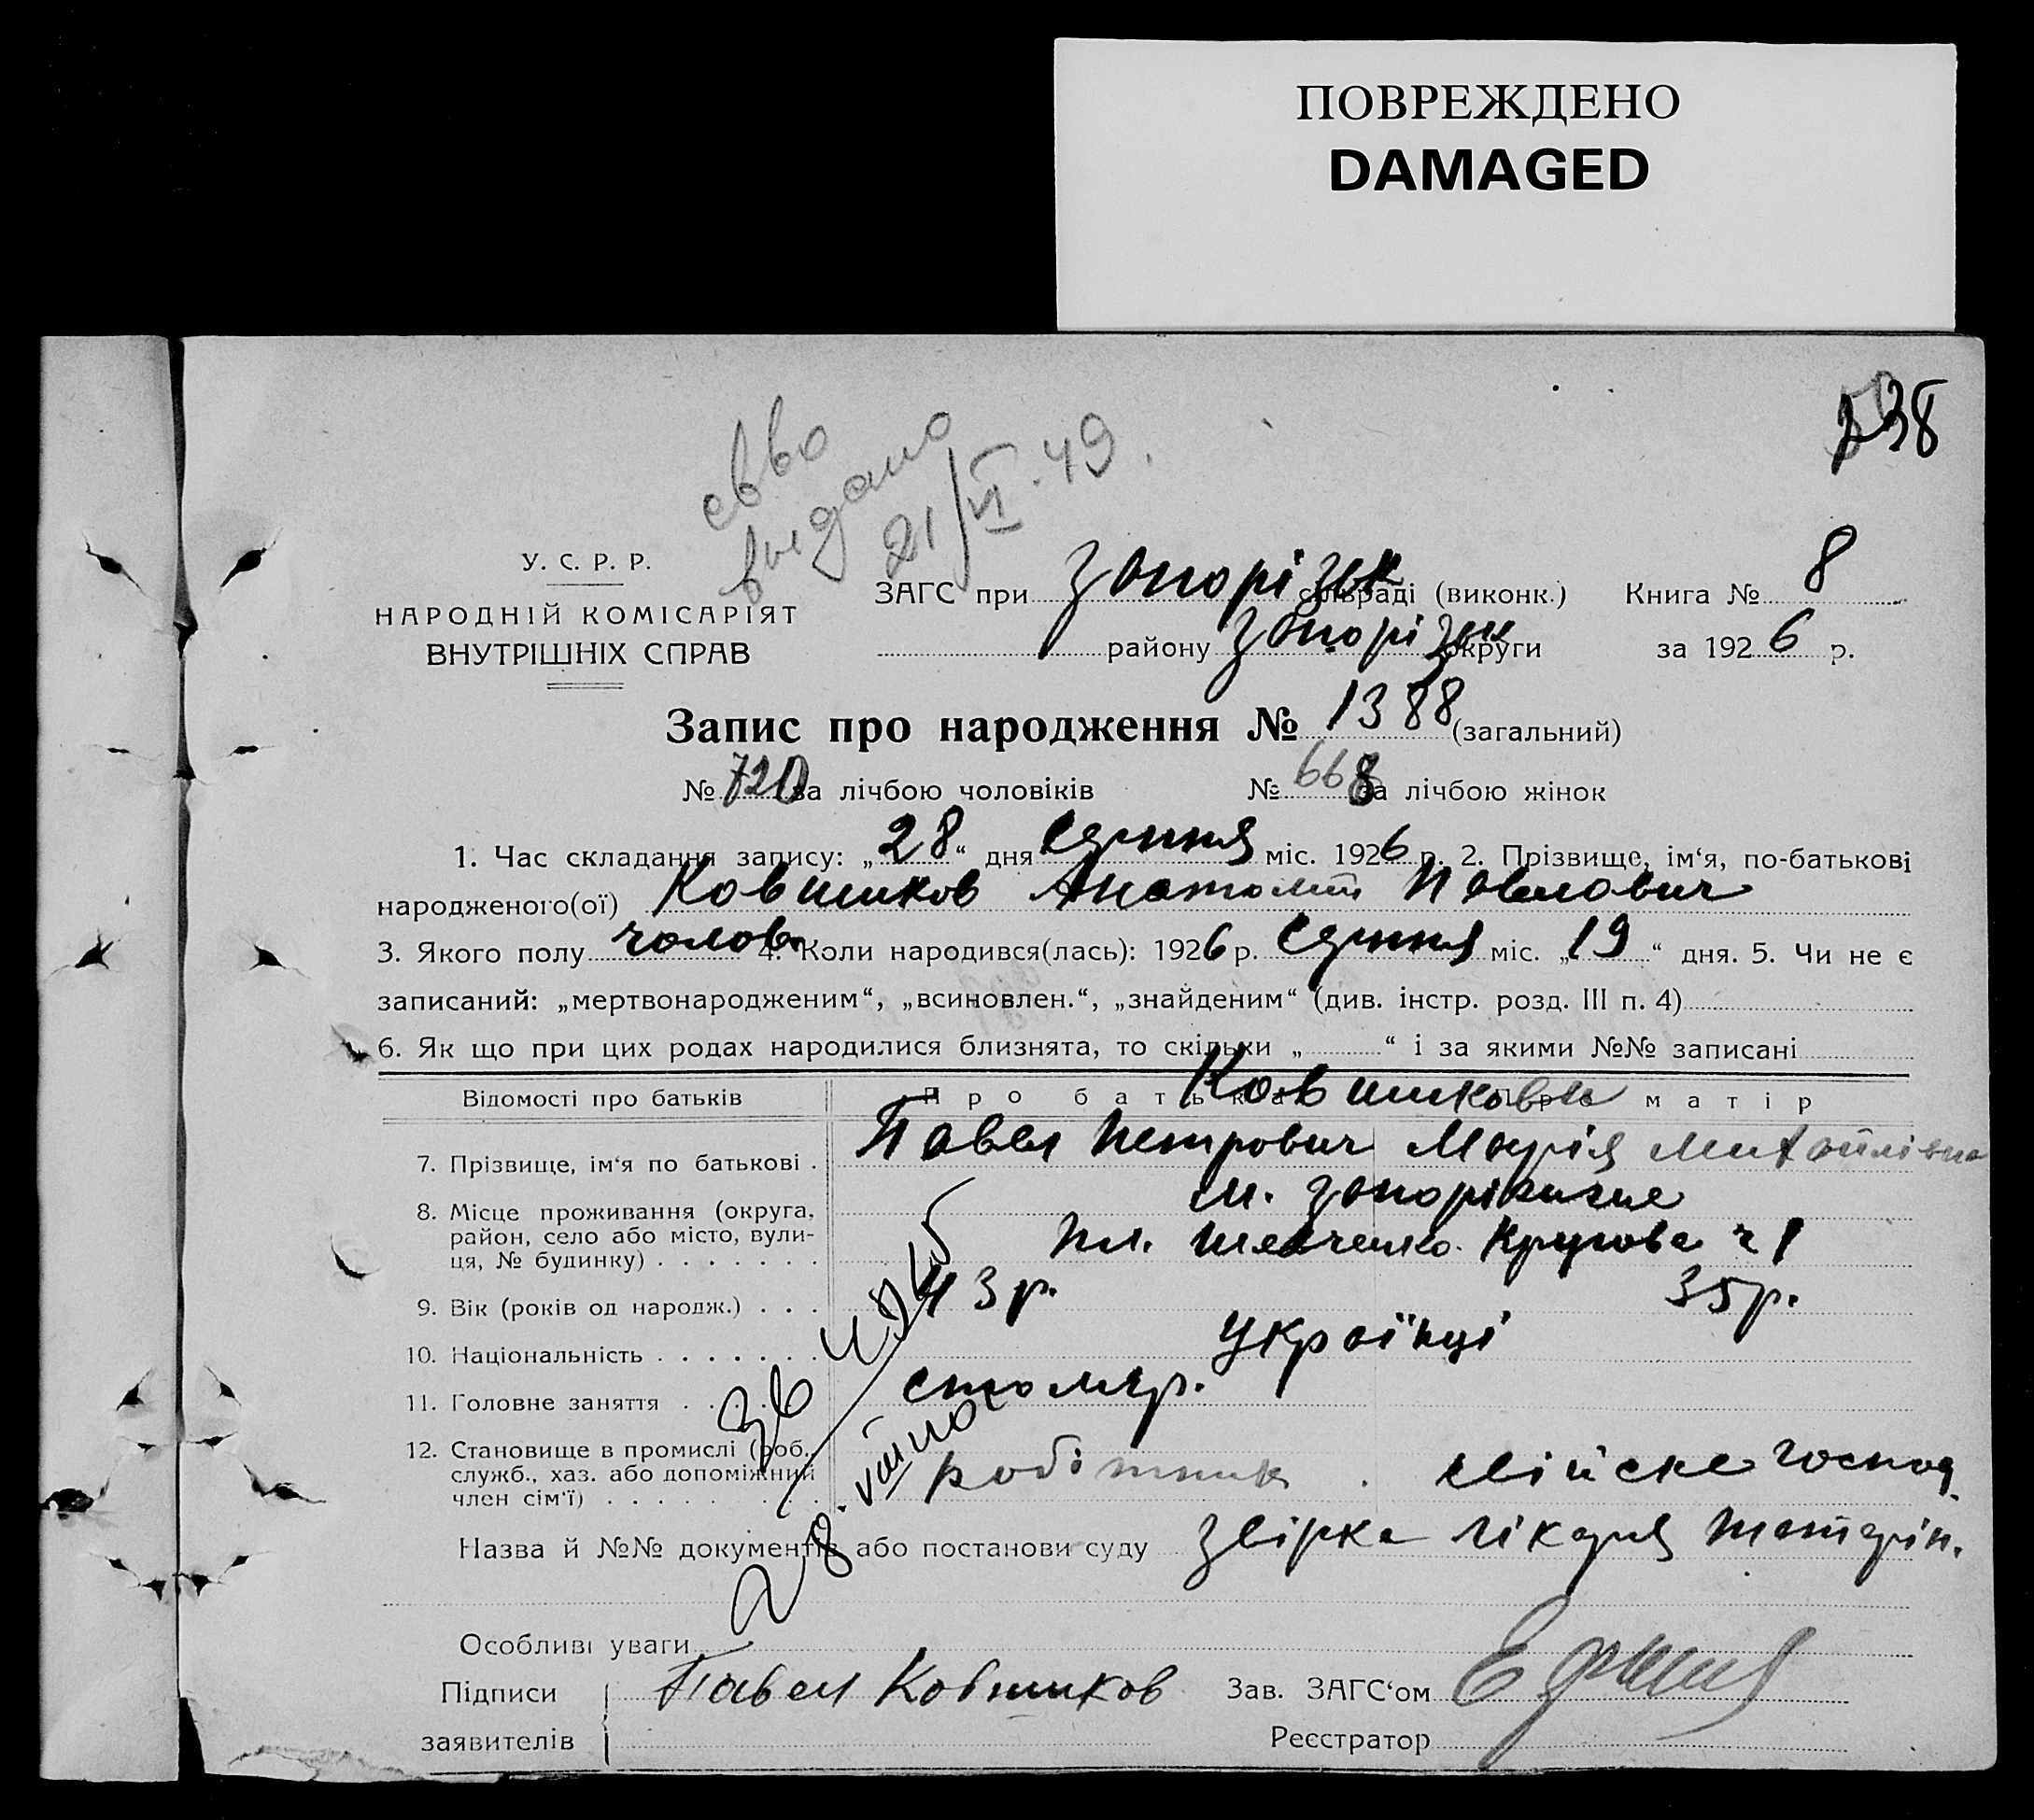 ПОВРЕЖДЕНО
DAMAGED
238
свво
выдано
21/VI.49.
У. С. Р. Р.
НАРОДНІЙ КОМІСАРІЯТ
ВНУТРІШНІХ СПРАВ
ЗАГС при Запорізьк сільраді (виконк.) Книга № 8
району Запорізьк округи за 1926 р.
Запис про народження № 1388 (загальний)
№ 720 за лічбою чоловіків № 668 за лічбою жінок
1. Час складання запису: „28“ дня Серпня міс. 1926 р. 2. Прізвище, ім‘я, по-батькові
народженого(ої) Ковшиков Анатолій Павлович
3. Якого полу чолов. 4. Коли народився(лась): 1926 р. Серпня міс. „19“ дня. 5. Чи не є
записаний: „мертвонародженим“, „всиновлен.“, „знайденим“ (див. інстр. розд. III п. 4)
6. Як що при цих родах народилися близнята, то скільки „ “ і за якими №№ записані
Відомості про батьків Про батька Про матір
Ковшикови
7. Прізвище, ім‘я по батькові . Павел Петрович Марія Михайлівна
8. Місце проживання (округа, м. Запоріжжье
район, село або місто, вули- пл. Шевченко Кругова ч 1
ця, № будинку)
9. Вік (років од народж.) . . . 43 р. 35 р.
10. Національність Українці
11. Головне заняття столяр.
12. Становище в промислі (роб.,
служб., хаз. або допоміжний робітник . свійске господ.
член сім‘ї)
Назва й №№ документів або постанови суду Звірка лікаря
Особливі уваги
Підписи Павел Ковшиков Зав. ЗАГС‘ом
заявителів Реєстратор